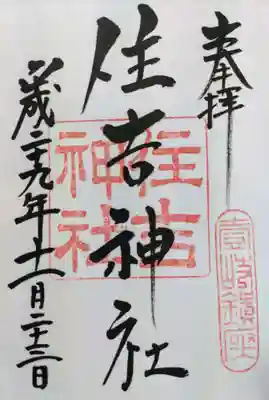 奉拝
壱岐鎮座
住吉神社
住吉神社
平成二十九年十一月二十三日